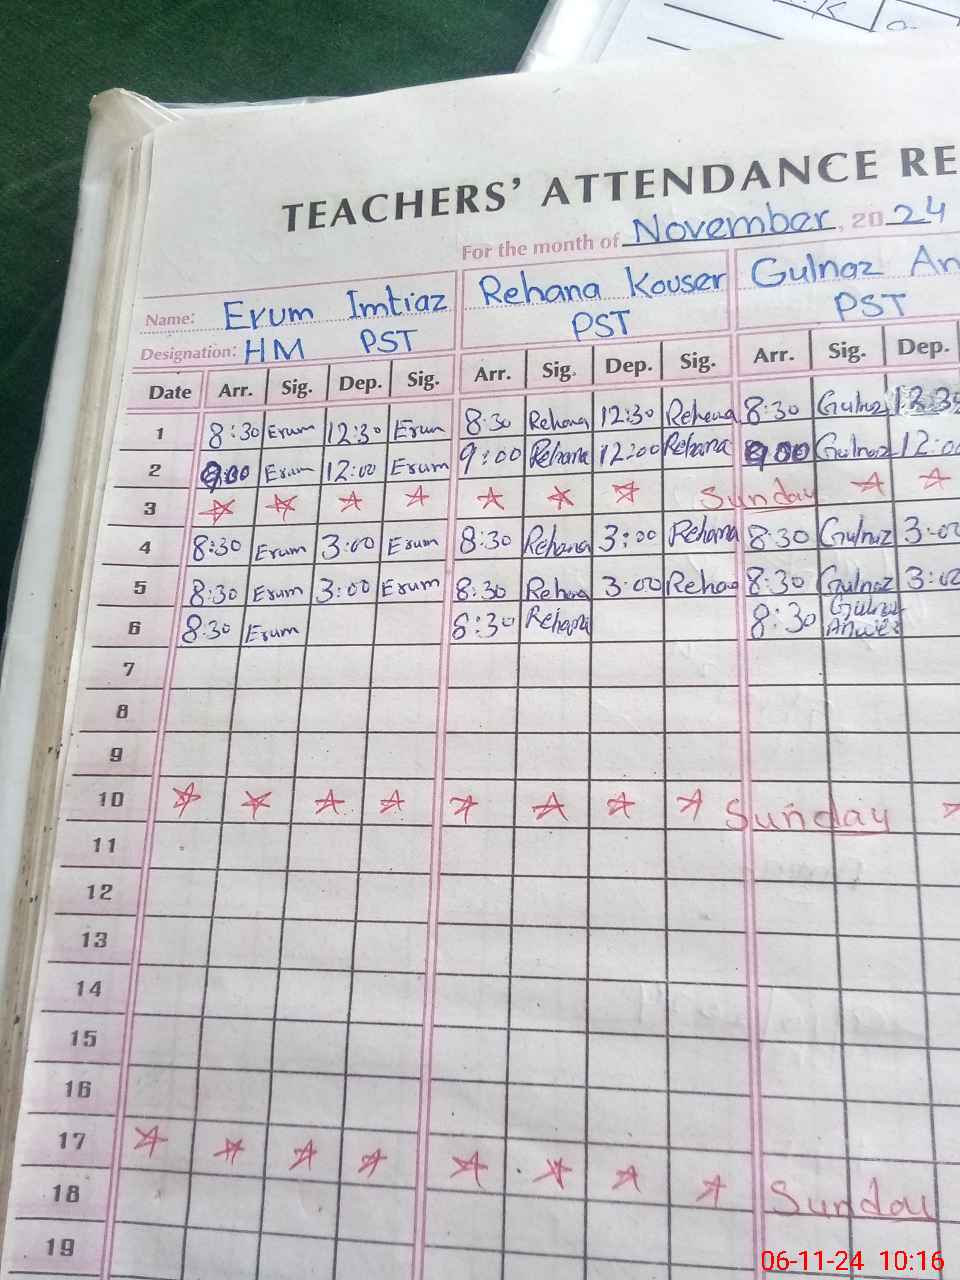 TEACHERS' ATTENDANCE RE
For the month of November, 2024
Name: Erum Imtiaz Rehana Kouser Gulnaz An
Designation: HM PST PST PST
Date Arr. Sig. Dep. Sig. Arr. Sig. Dep. Sig. Arr. Sig. Dep.
1 8:30 Erum 12:30 Erum 8:30 Rehana 12:30 Rehana 8:30 Gulnaz 12:30
2 9:00 Erum 12:00 Erum 9:00 Rehana 12:00 Rehana 9:00 Gulnaz 12:00
3 Sunday
4 8:30 Erum 3:00 Erum 8:30 Rehana 3:00 Rehana 8:30 Gulnaz 3:00
5 8:30 Erum 3:00 Erum 8:30 Rehana 3:00 Rehana 8:30 Gulnaz 3:00
6 8:30 Erum 8:30 Rehana 8:30 Gulnaz Anwer
7
8
9
10 Sunday
11
12
13
14
15
16
17 Sunday
18
19
06-11-24 10:16